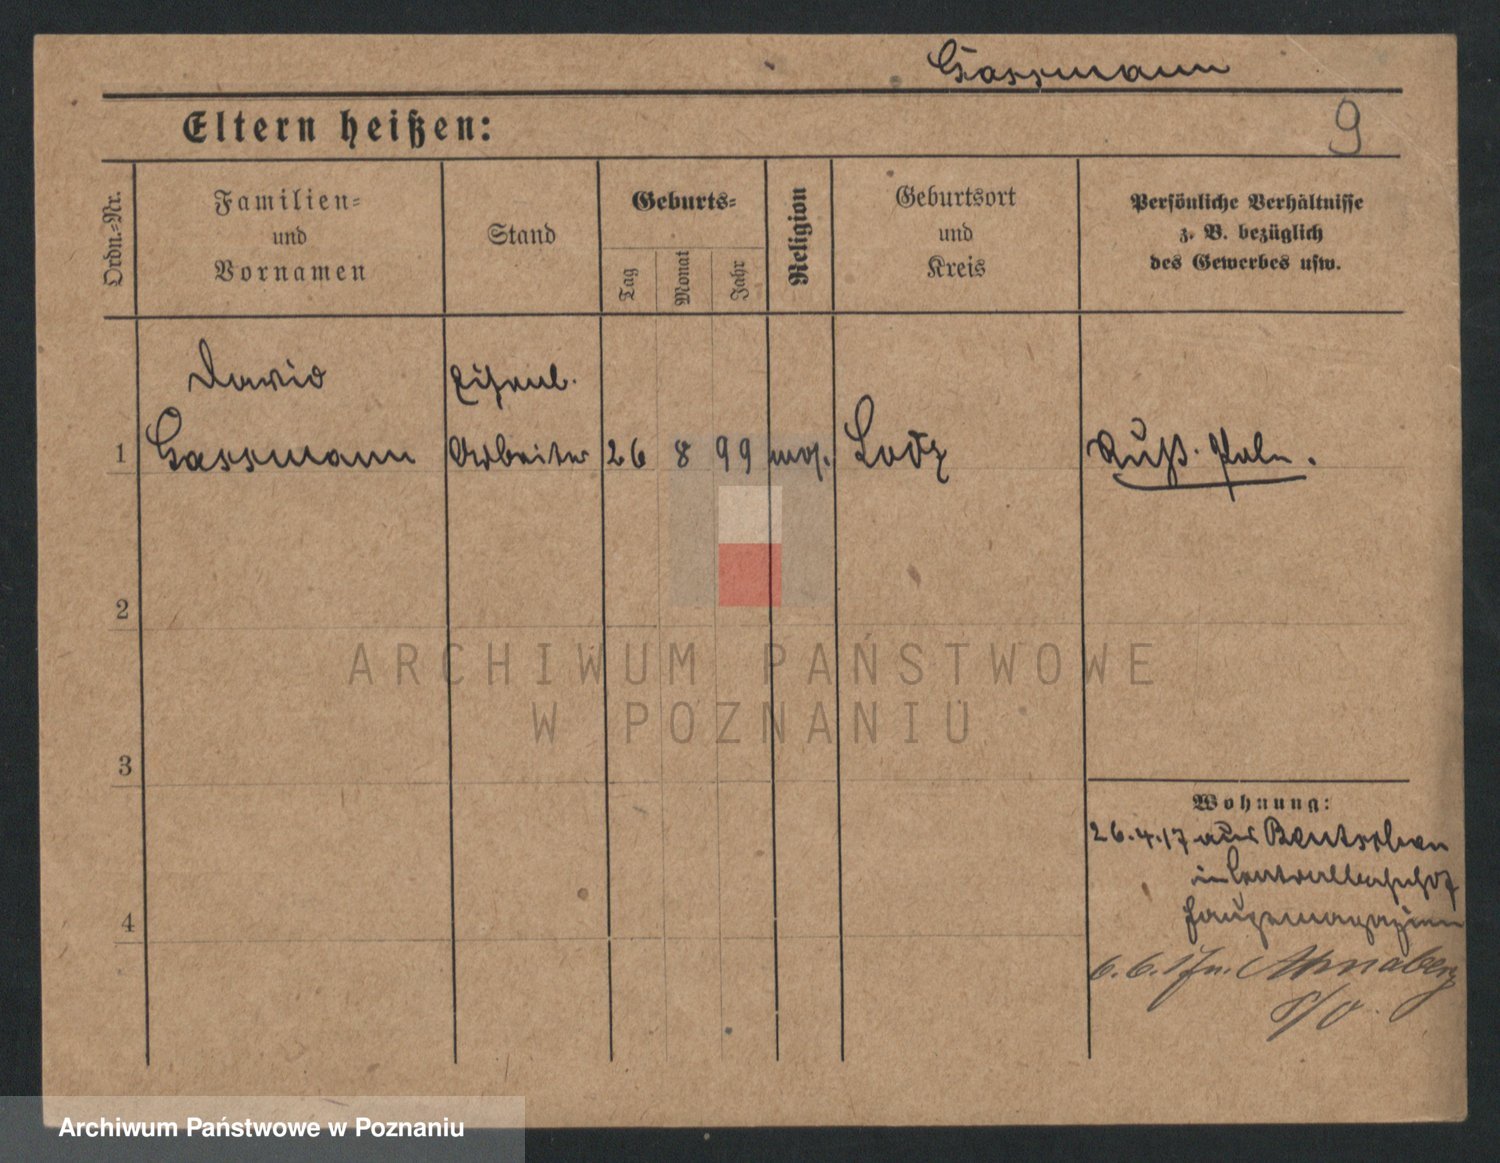 Gassmann
9
Eltern heißen:
Ordn.-Nr.
Familien-
und
Vornamen
Stand
Geburts-
Tag
Monat
Jahr
Religion
Geburtsort
und
Kreis
Persönliche Verhältnisse
z. B. bezüglich
des Gewerbes usw.
David Eisenb.
1 Gassmann Arbeiter 26 8 99 mos. Lodz Russ. Polen.
2
ARCHIWUM PAŃSTWOWE
W POZNANIU
3
Wohnung:
26.4.17 aus Bentschen
in Centralbahnhof
4
6.6.17 n. Annaberg
O/S.
Archiwum Państwowe w Poznaniu